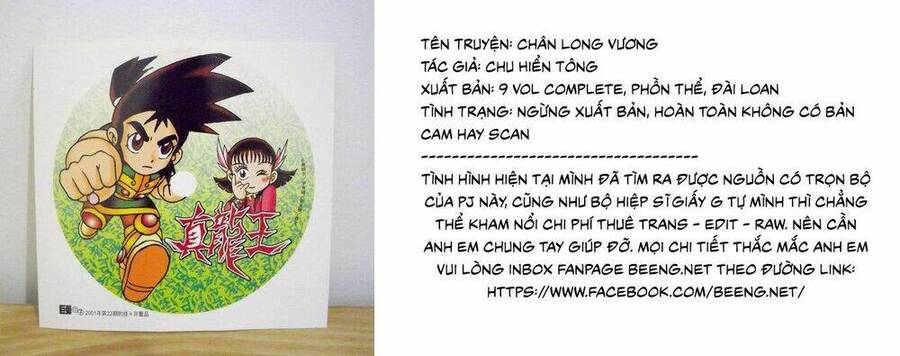 真龍王
2001年第22期附錄★非賣品
TÊN TRUYỆN: CHÂN LONG VƯƠNG
TÁC GIẢ: CHU HIỂN TÔNG
XUẤT BẢN: 9 VOL COMPLETE, PHỒN THỂ, ĐÀI LOAN
TÌNH TRẠNG: NGỪNG XUẤT BẢN, HOÀN TOÀN KHÔNG CÓ BẢN
CAM HAY SCAN
------------------------------------
TÌNH HÌNH HIỆN TẠI MÌNH ĐÃ TÌM RA ĐƯỢC NGUỒN CÓ TRỌN BỘ
CỦA PJ NÀY, CŨNG NHƯ BỘ HIỆP SĨ GIẤY G TỰ MÌNH THÌ CHẲNG
THỂ KHAM NỔI CHI PHÍ THUÊ TRANS - EDIT - RAW. NÊN CẦN
ANH EM CHUNG TAY GIÚP ĐỠ. MỌI CHI TIẾT THẮC MẮC ANH EM
VUI LÒNG INBOX FANPAGE BEENG.NET THEO ĐƯỜNG LINK:
HTTPS://WWW.FACEBOOK.COM/BEENG.NET/